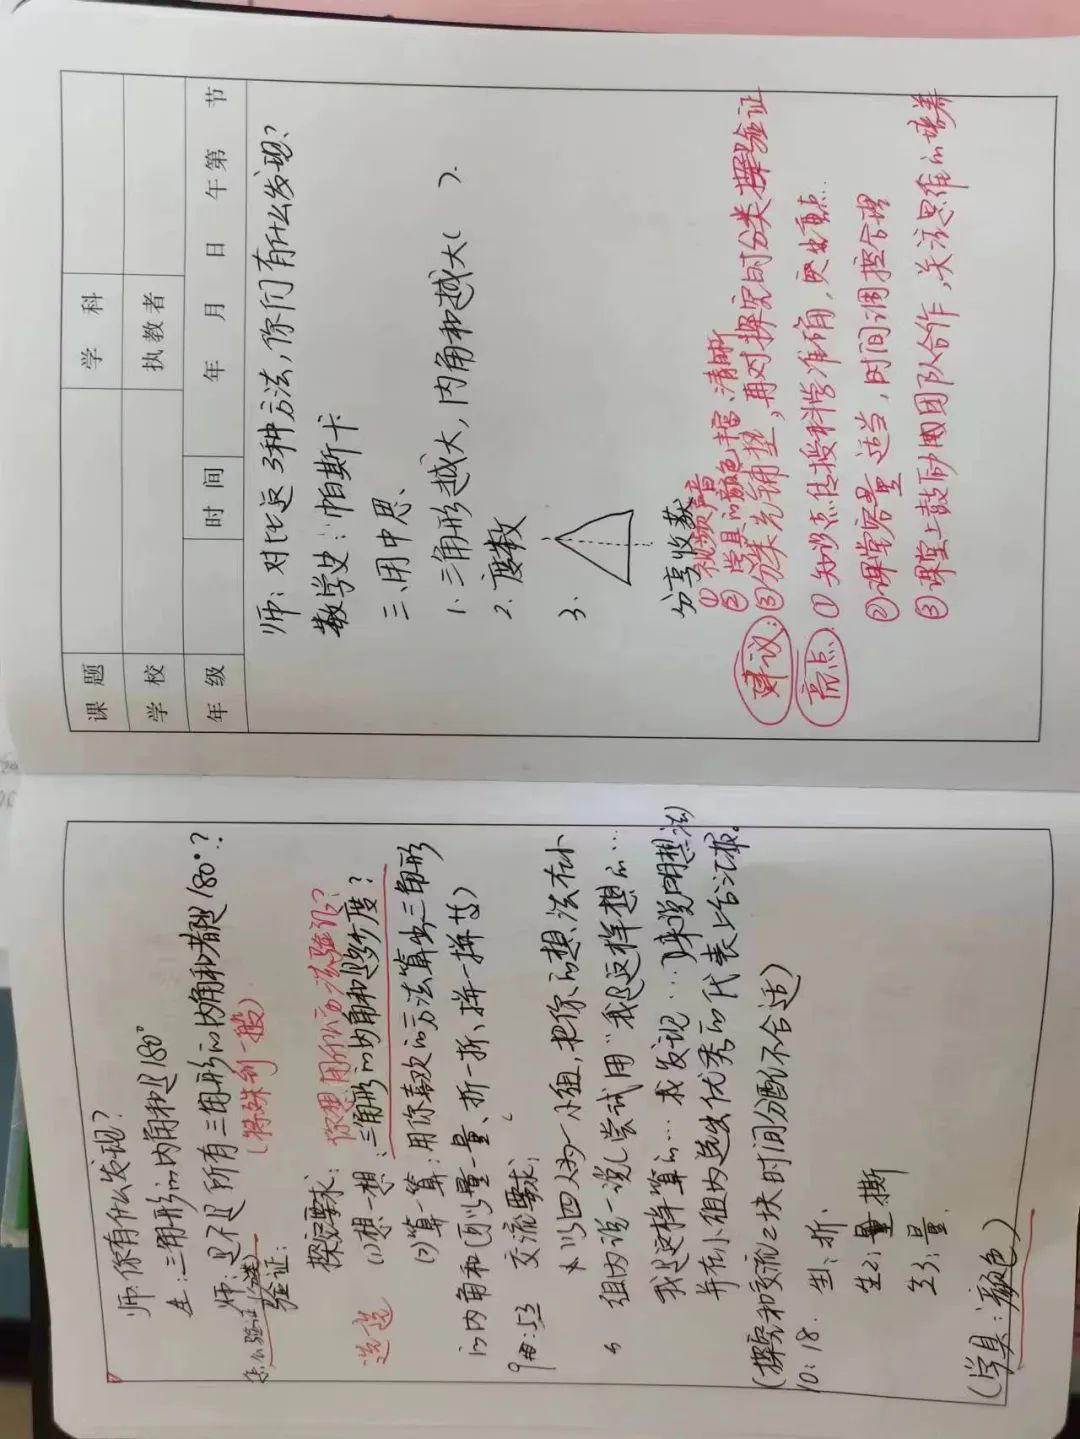 师:你有什么发现?
生:三角形的内角和是180°
师:是不是所有三角形的内角和都是180°?
怎么验证(分类)
(特殊到一般)
验证:
你想用什么方法验证?
探究要求:
(1)想一想:三角形的内角和是多少度?
选选
(2)算一算:用你喜欢的方法算出三角形
的内角和(可以量一量、折一折、拼一拼等)
9:53
交流要求:
以四人为一小组,把你的想法在小
组内说一说(尝试用“我是这样想的…
我是这样算的…我发现…)来说明想法
并在小组内选出优秀的代表上台汇报。
(探究和交流2块时间分配不合适)
10:18.
生1:折、
生2:撕
生3:量.
(学具:颜色)
课题
学科
学校
执教者
年级
时间
年 月 日 午第 节
师:对比这3种方法,你们有什么发现?
数学史:帕斯卡
三、用中思、
1.三角形越大,内角和越大( ).
2.度数
3.
分享收获
①视频声音
②学具的颜色丰富、清晰
建议:③分类先铺垫,再对探究时分类择验证
亮点.①知识点传授科学准确,突出重点..
②课堂容量适当,时间调控合理
③课堂上鼓励团队合作,关注思维的培养